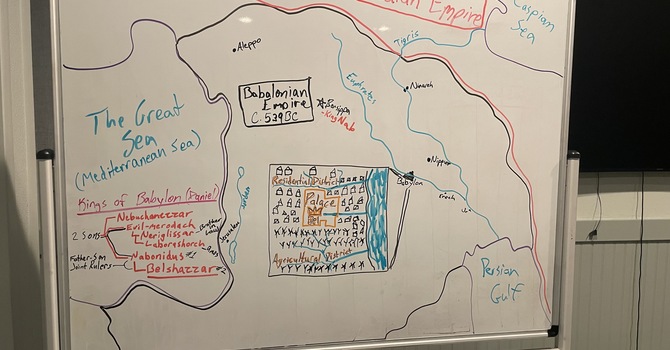 Empire
Caspian
Sea
Tigris
Aleppo
Euphrates
Nineveh
Babalonian
Empire
C. 539BC
King Nab
The Great
Sea
(Mediterranean Sea)
Kings of Babylon (Daniel)
Nebuchanezzar
2 Sons
Evil-Merodach
Neriglissar
Brother
in
Law
Laboroshorch
Nabonidus #1
Father-Son
Joint Rulers
Belshazzar #2
Jordan
Residential District
Palace
Agricultural District
Nippur
Babylon
Erech
Ur
Persian
Gulf